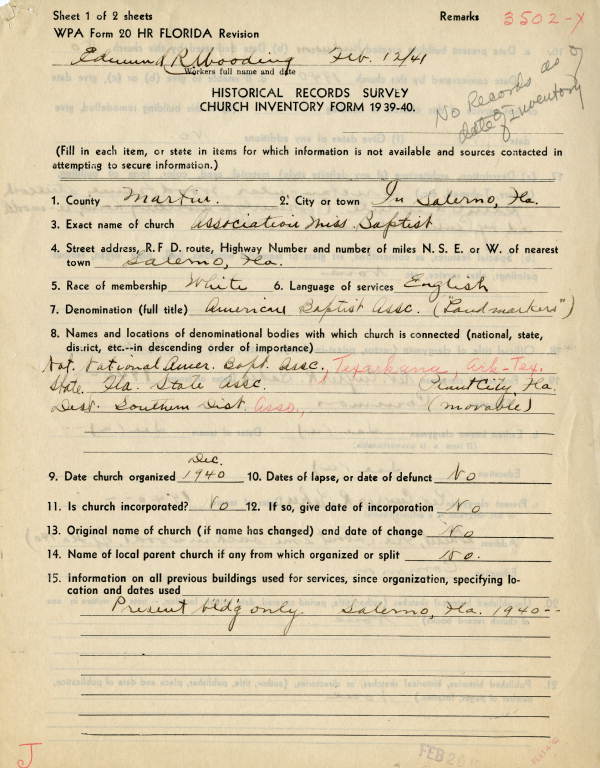 Sheet 1 of 2 sheets
Remarks 3502-X
WPA Form 20 HR FLORIDA Revision
Edmund R Wooding Feb. 12/41
Workers full name and date
HISTORICAL RECORDS SURVEY
CHURCH INVENTORY FORM 1939-40.
No Records as of
date of Inventory
(Fill in each item, or state in items for which information is not available and sources contacted in
attempting to secure information.)
1. County Martin 2. City or town In Salerno, Fla.
3. Exact name of church Association Miss. Baptist
4. Street address, R.F D. route, Highway Number and number of miles N. S. E. or W. of nearest
town Salerno, Fla.
5. Race of membership White 6. Language of services English
7. Denomination (full title) American Baptist Assc. ("Landmarkers")
8. Names and locations of denominational bodies with which church is connected (national, state,
district, etc.--in descending order of importance)
Nat. National Amer. Bapt. Assc., Texarkana, Ark-Tex.
State. Fla. State Assc. Plant City, Fla.
Dist. Southern Dist. Asso., (movable)
Dec.
9. Date church organized 1940 10. Dates of lapse, or date of defunct No
11. Is church incorporated? No 12. If so, give date of incorporation No
13. Original name of church (if name has changed) and date of change No
14. Name of local parent church if any from which organized or split No.
15. Information on all previous buildings used for services, since organization, specifying lo-
cation and dates used
Present bldg only. Salerno, Fla. 1940--
J
FEB 20